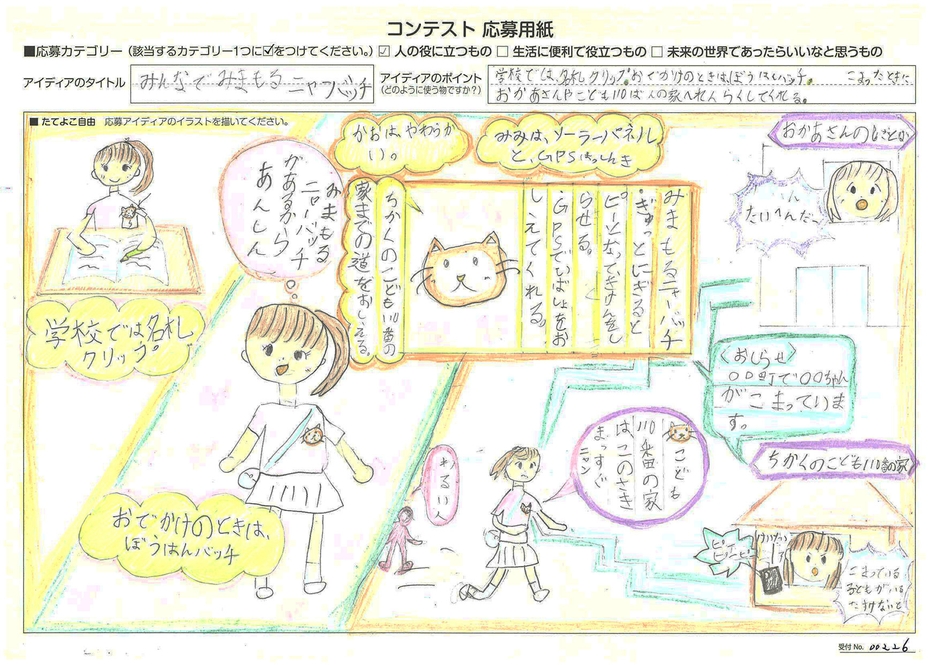 コンテスト 応募用紙
■応募カテゴリー（該当するカテゴリー1つに☑をつけてください。）☑ 人の役に立つもの □ 生活に便利で役立つもの □ 未来の世界であったらいいなと思うもの
アイディアのタイトル
みんなでみまもるニャンバッチ
アイディアのポイント
（どのように使う物ですか？）
学校では、名札クリップ。おでかけのときはぼうはんバッチ。 こまったときに
おかあさんやこども110は人の家へれんらくしてくれる。
■ たてよこ自由 応募アイディアのイラストを描いてください。
かおは、やわらか
い。
みみは、ソーラーパネル
と、GPSはっしんき
おかあさんのしごとば
たいへんだ〜
みまもる
ニャンバッチ
があるから
あんしん
ちかくのこども110番の
家までの道をおしえる。
みまもるニャーバッチ
・ぎゅっとにぎると
ピーとなってきけんをし
らせる。
・GPSでいばしょをお
しえてくれる。
学校では名札
クリップ
〈おしらせ〉
〇〇町で〇〇ちゃん
がこまっていま
す。
ちかくのこども110番の家
こども
110番の家
はこのさき
まっすぐ
ニャン
わるい人
おでかけのときは、
ぼうはんバッチ
ピーピー
こまっている
子どもがいる
たすけないと
受付 No. 00226